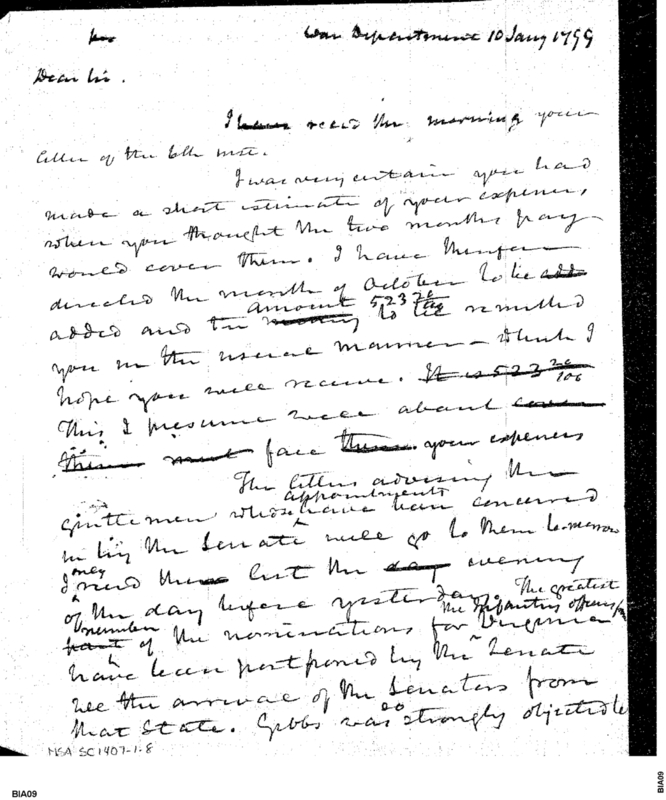 War Department 10 Jany 1799
Dear Sir.
I have recd this morning your
letter of the 6th inst.
I was very certain you had
made a short estimate of your expences,
when you thought the two months pay
would cover them. I have therefore
directed the month of October to be add
amount 523 20/100
added and the money to be remitted
you in the usual manner – which I
hope you will receive. It is 523 20/100
This I presume will about cover
them must face these your expences
The letters advising the
appointments
gentlemen whose have been concurred
in by the Senate will go to them to-morrow
only
I recd the list the day evening
of the day before yesterday. The greatest
number the Infantry officers
part of the nominations for Virginia
have been postponed by the Senate
till the arrival of the Senators from
that State. Gibbs was so strongly objected to
MSA SC1407-1-8
BIA09
BIA09